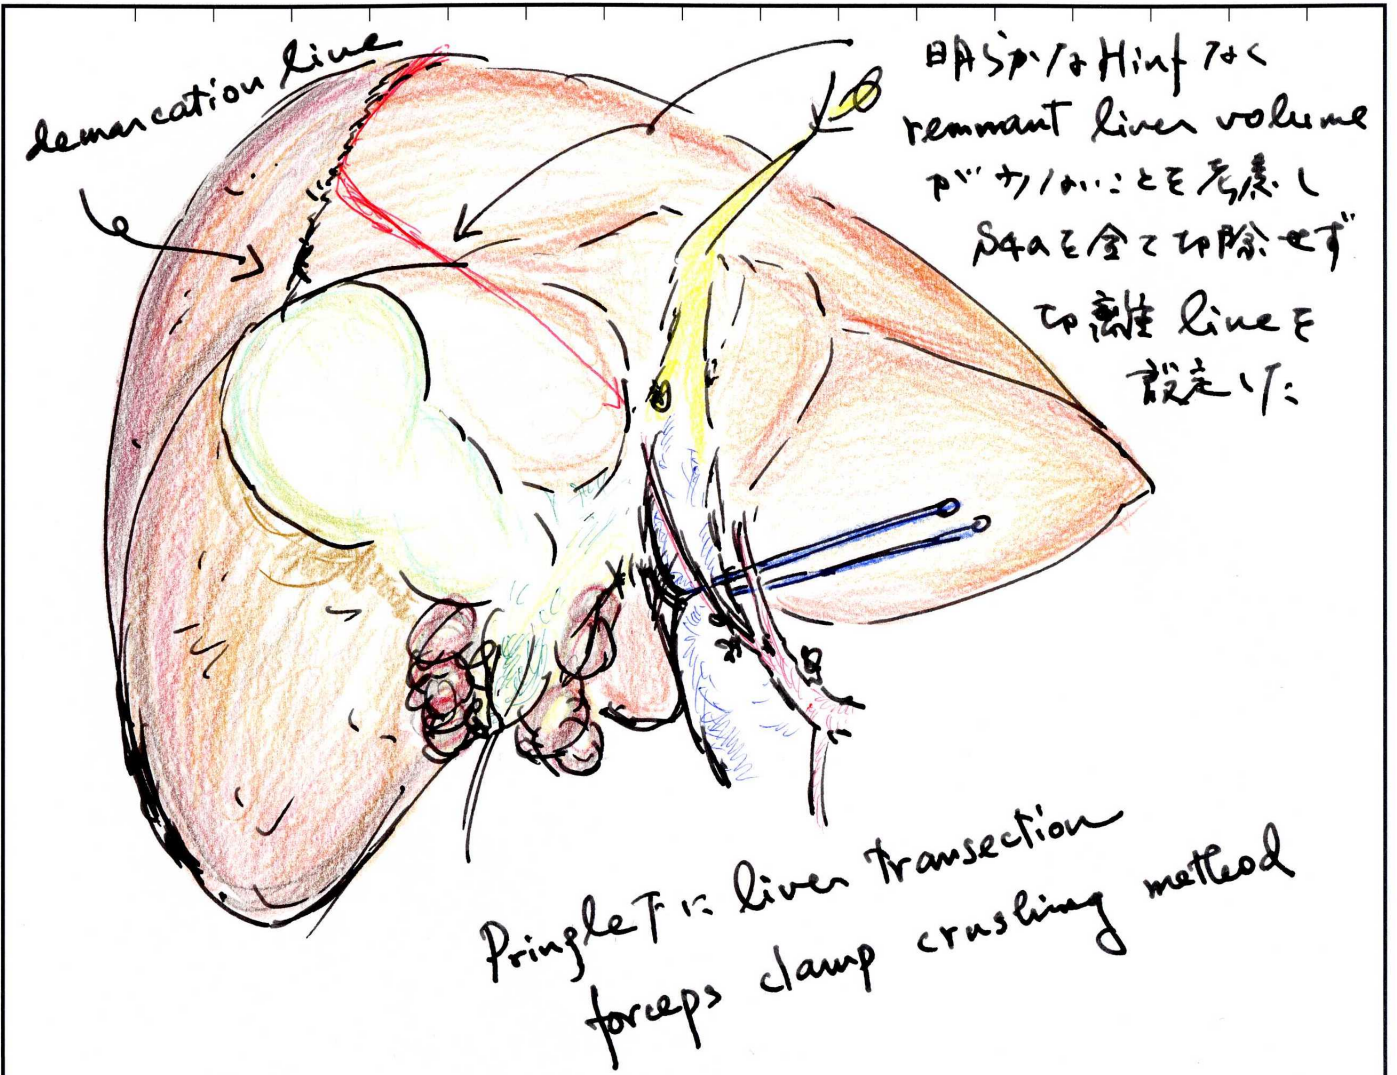 demarcation line
明らかなHinfなく
remnant liver volume
が少ないことを考慮し
S4aを全て切除せず
切離 lineを
設定した
Pringle下に liver transection
forceps clamp crushing method